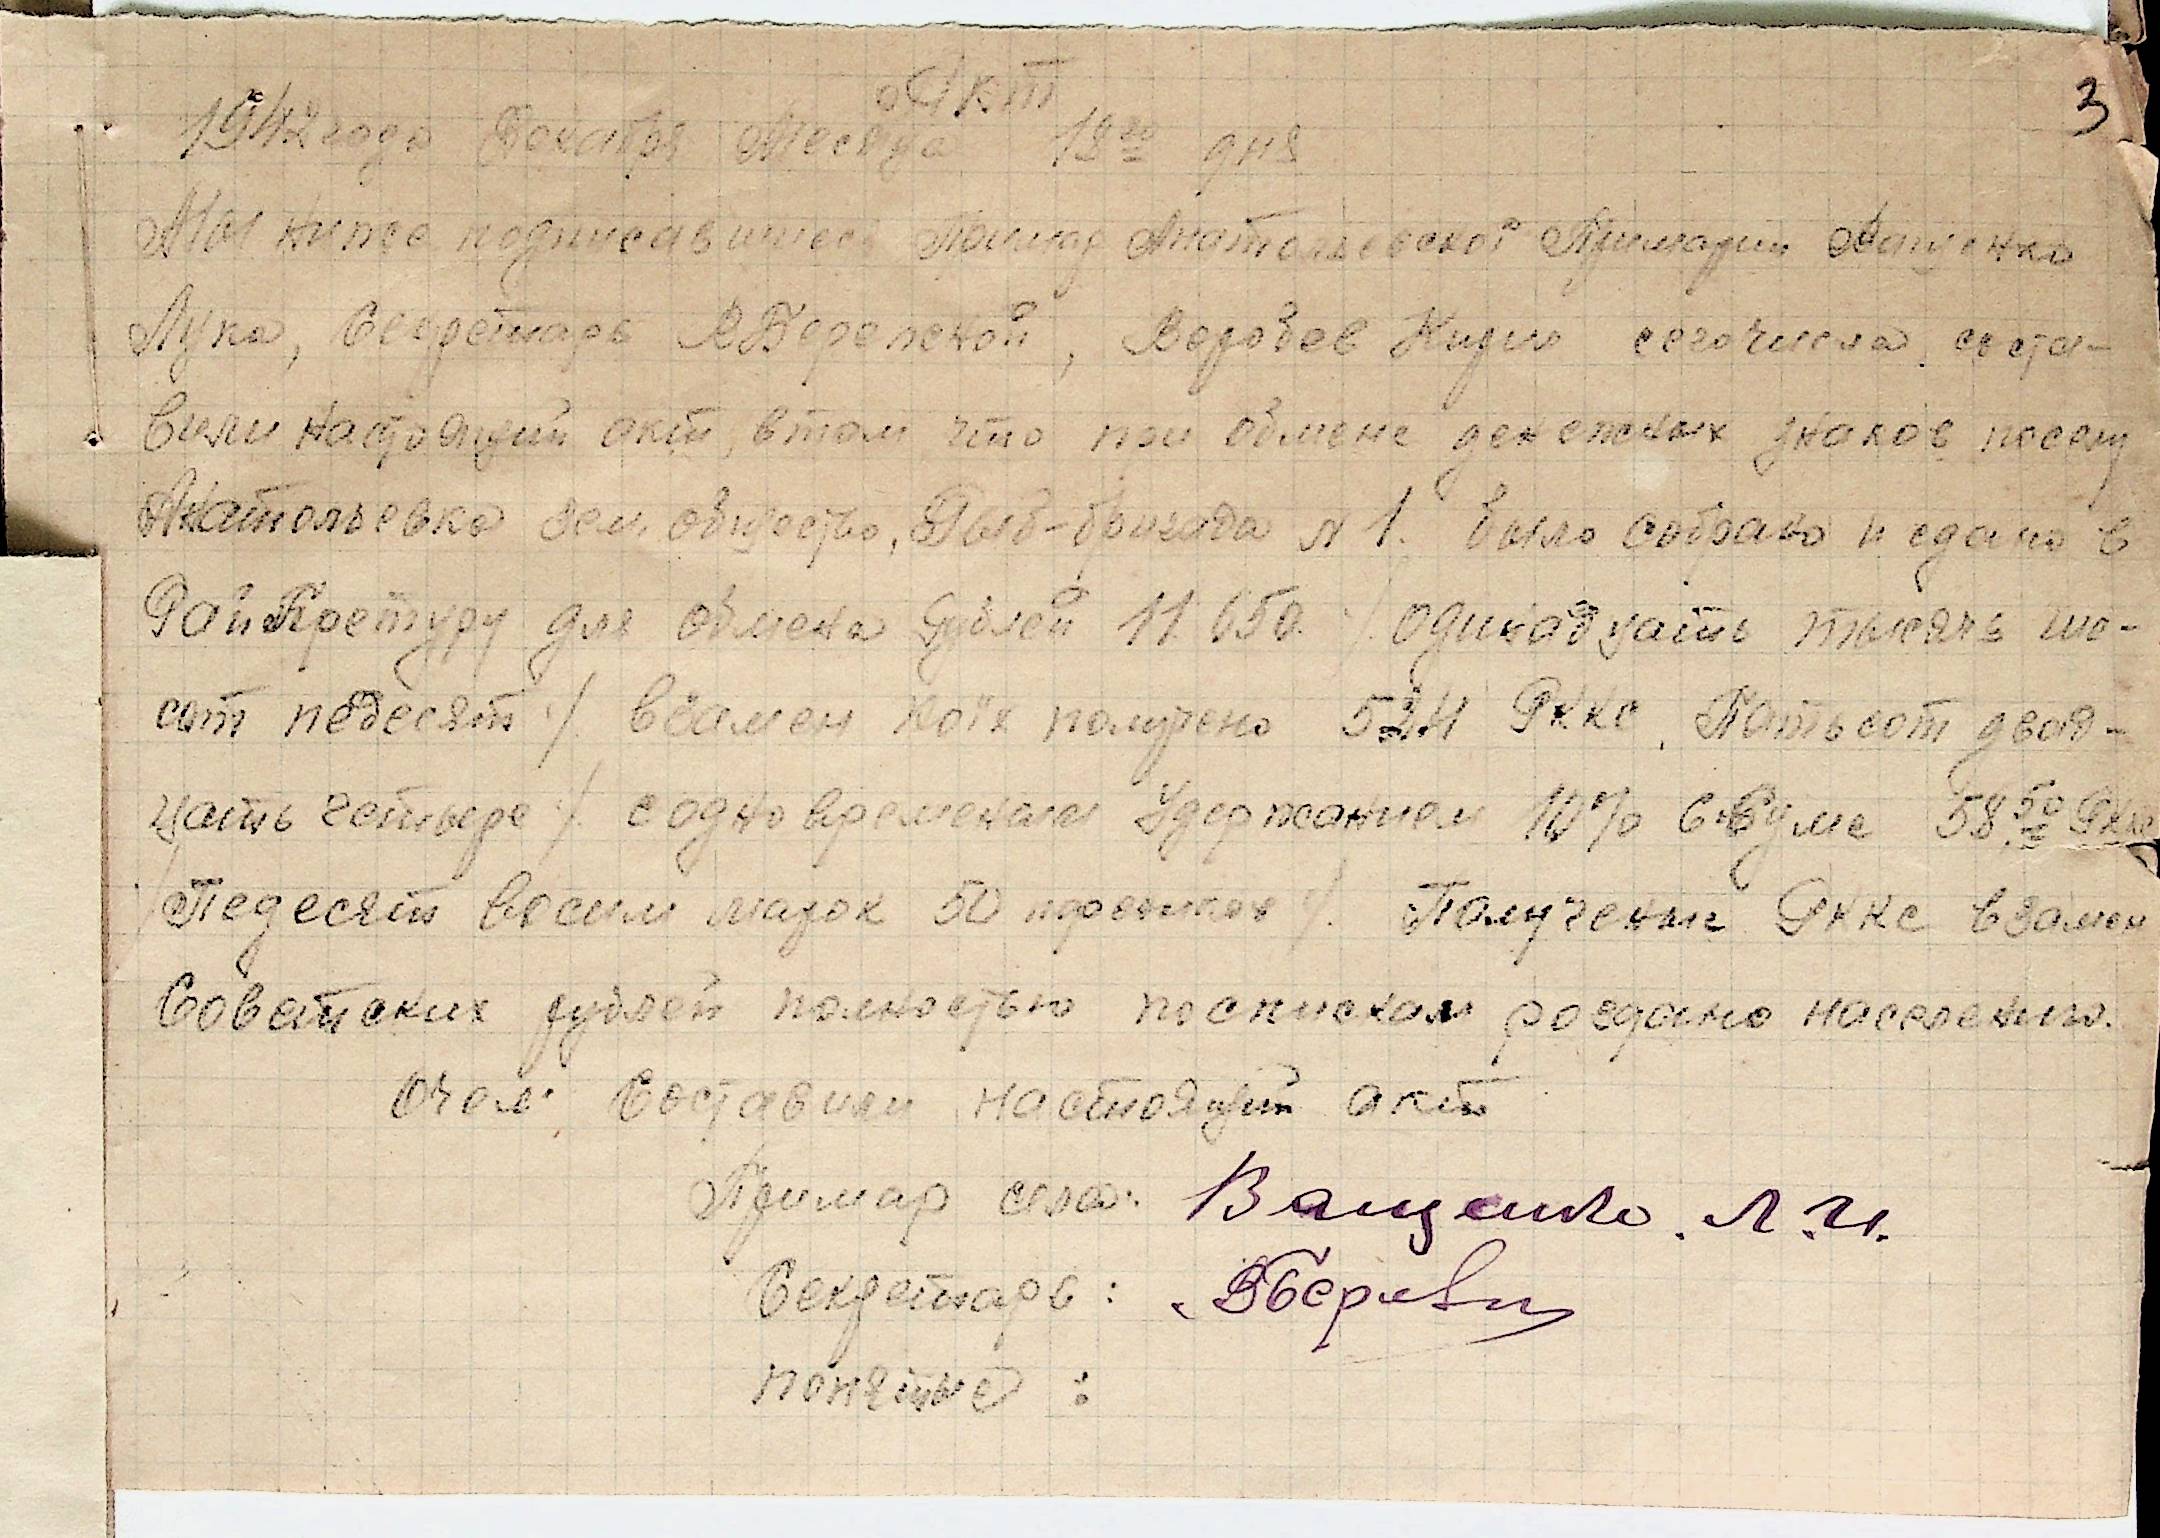 Акт
3
1942 года Декабря Месяца 18го дня
Мы ниже подписавшиеся Примар Анатольевской Примарии
Лука, Секретарь сего числа соста-
вили настоящий акт, втом что при обмене денежных знаков поселу
Анатольевка зем. общество, Рыб-бригада N 1. было собрано и сдано в
РайПретуру для обмена рублей 11.650. / одинадцать тысячь ше-
сот педесят /. взамен коїх получено 524 Рккс. Пятьсот двад-
цать четыре /. содновременым Удержанием 10% в Суме 58,50 Рккс
/ Педесят восим марок 50 пфеников /. Полученые Рккс взамен
Советских рублей полностью поспискам роздано населению.
Очом: Составили настоящий акт
Примар села: Ващенко. Л. И.
Секретарь:
понятые: